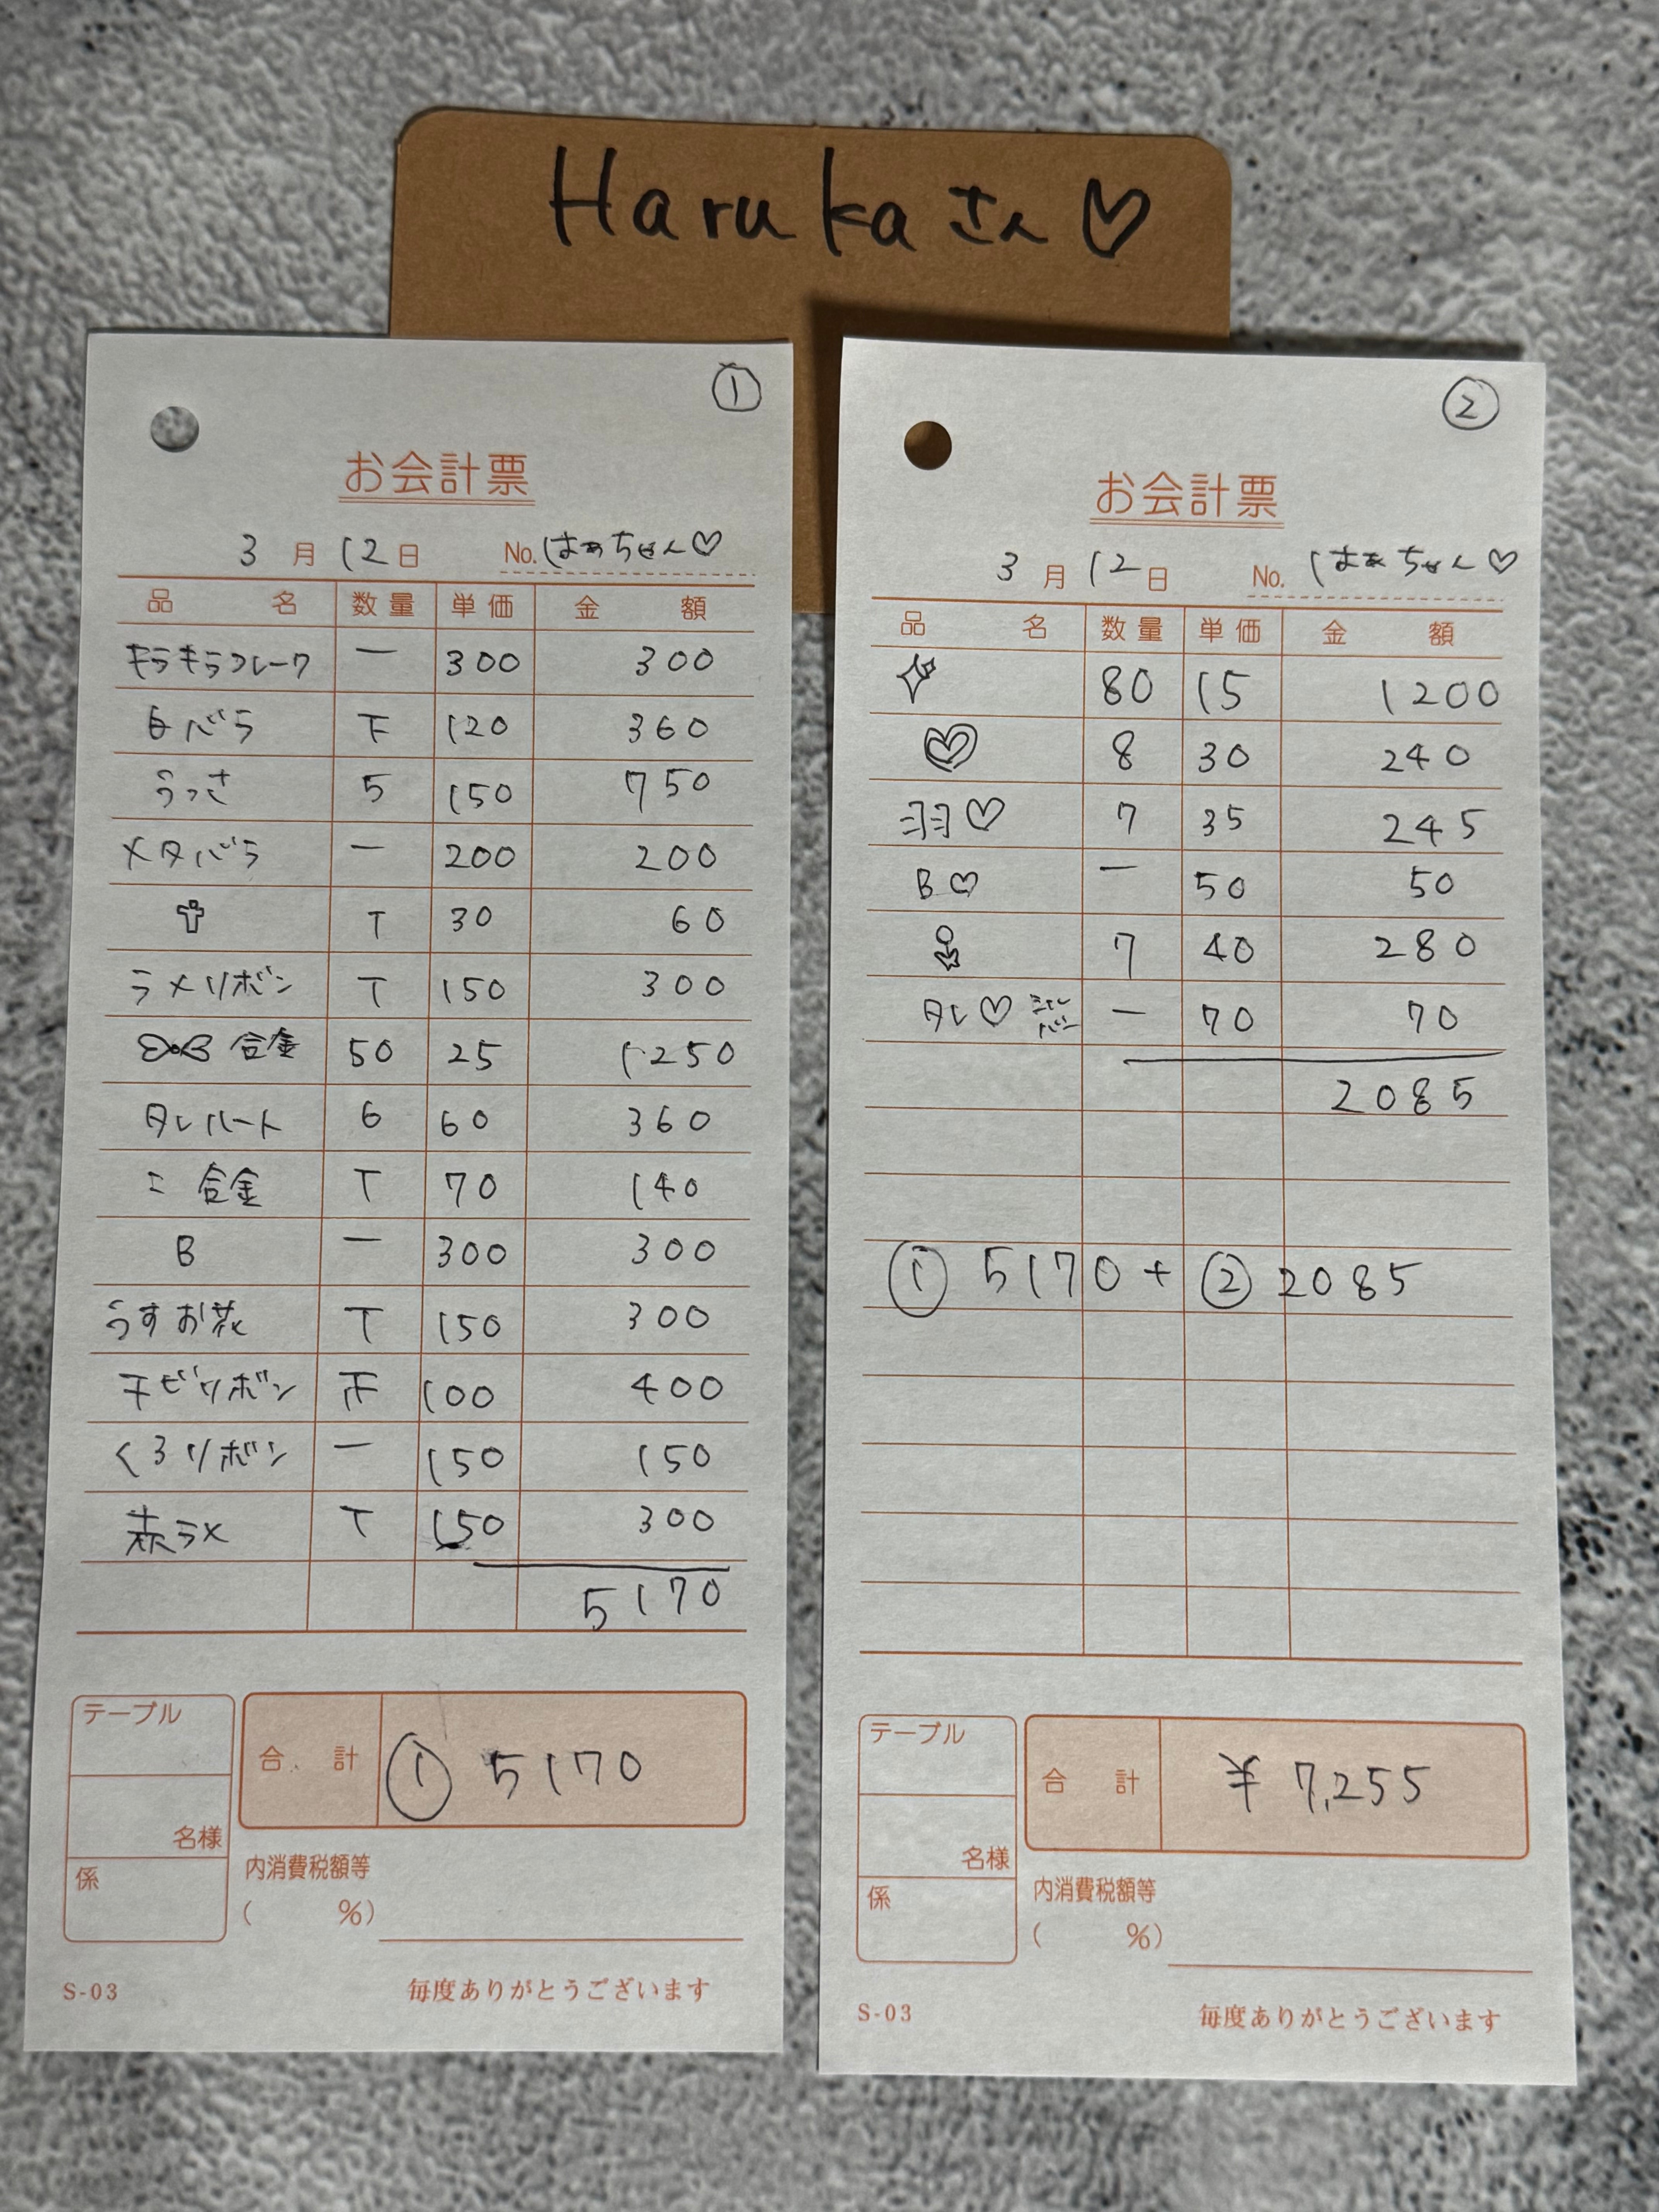 Harukaさん♡
①
お会計票
3月12日 No.はぁちゃん♡
品名 数量 単価 金額
キラキラフレーク 一 300 300
白バラ 下 120 360
うっさ 5 150 750
メタバラ 一 200 200
✝ T 30 60
ラメリボン T 150 300
合金 50 25 1250
タレハート 6 60 360
〃 合金 T 70 140
B 一 300 300
うすお花 T 150 300
チビリボン 正 100 400
くろリボン 一 150 150
赤ラメ T 150 300
5170
合計 ① 5170
テーブル
名様
係
内消費税額等
( %)
S-03 毎度ありがとうございます
②
お会計票
3月12日 No.はぁちゃん♡
品名 数量 単価 金額
80 15 1200
♡ 8 30 240
羽♡ 7 35 245
B♡ 一 50 50
7 40 280
タレ♡ シルバー 一 70 70
2085
① 5170 + ② 2085
合計 ¥7,255
テーブル
名様
係
内消費税額等
( %)
S-03 毎度ありがとうございます